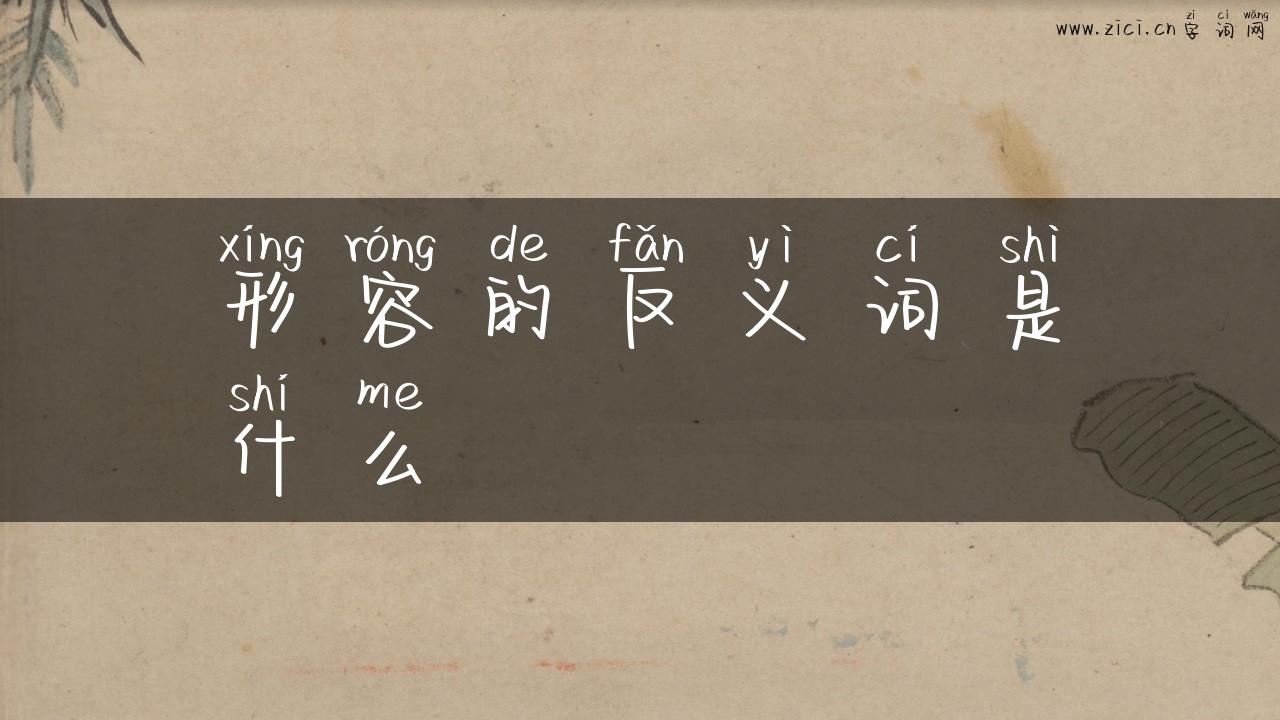 zì cí wǎng
www.zici.cn 字词网
xíng róng de fǎn yì cí shì
形容的反义词是
shí me
什么